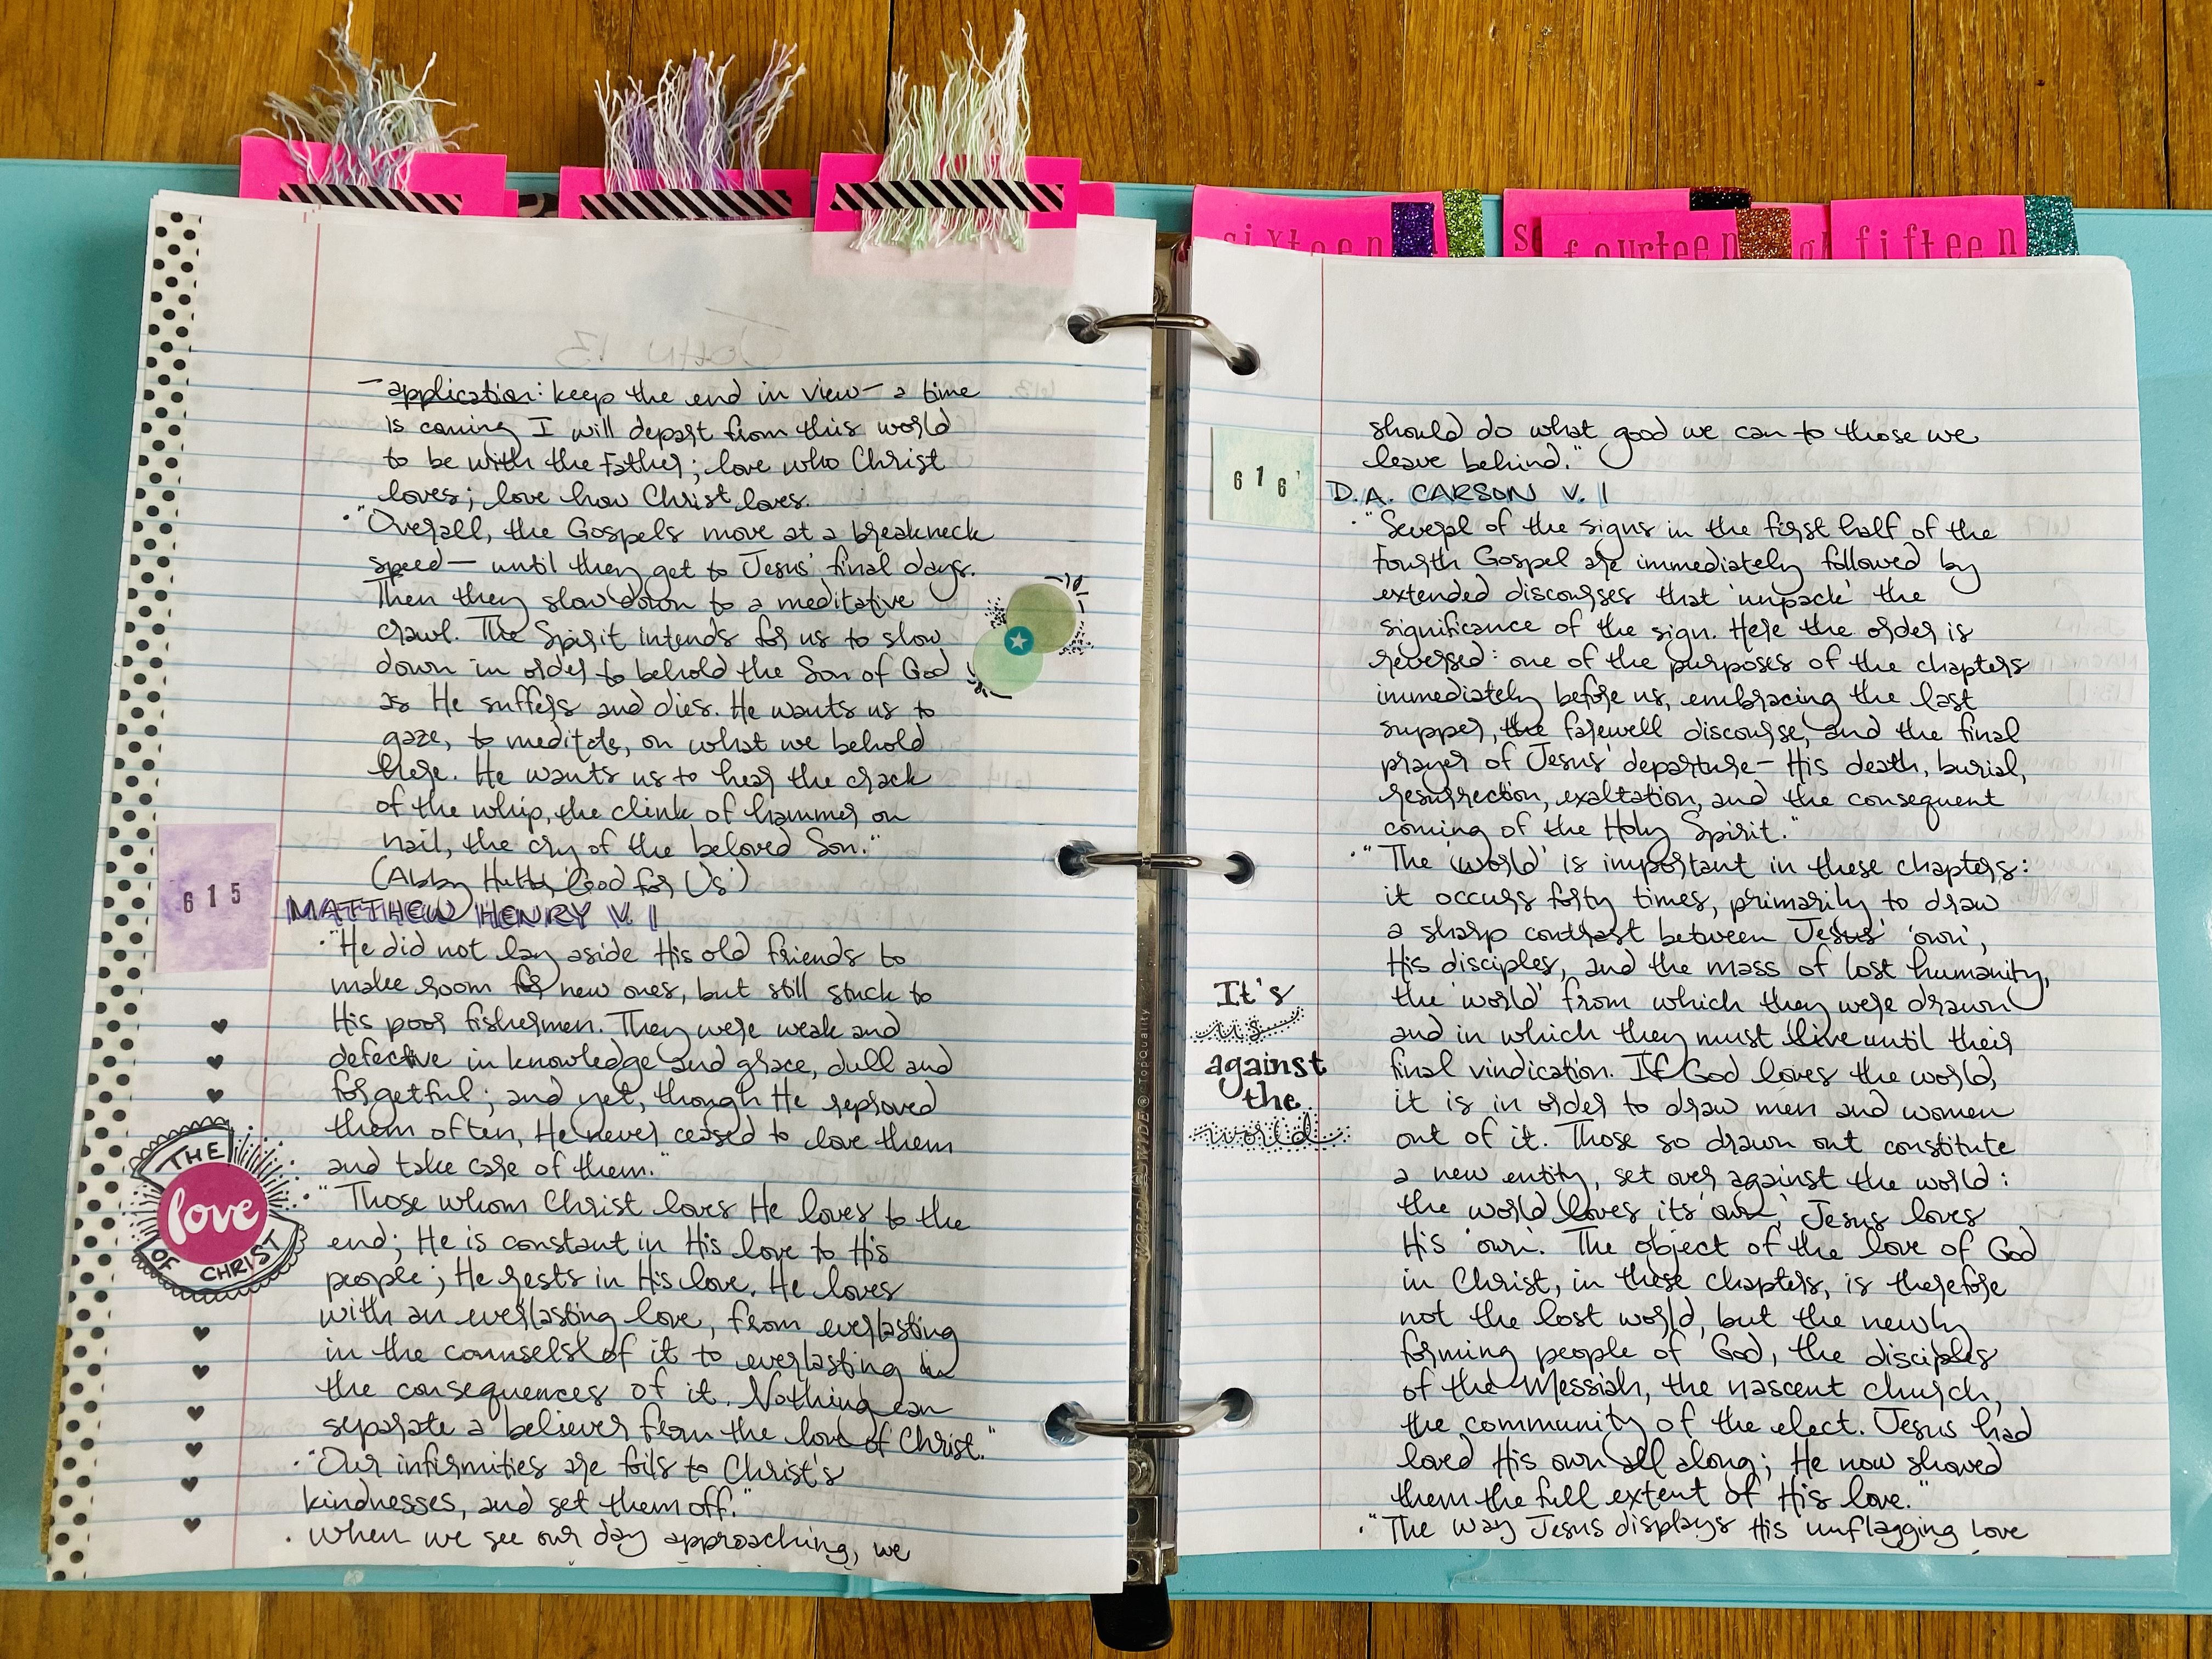 sixteen
fourteen
fifteen
- application: keep the end in view - a time
is coming I will depart from this world
to be with the Father; love who Christ
loves; love how Christ loves.
• "Overall, the Gospels move at a breakneck
speed - until they get to Jesus' final days.
Then they slow down to a meditative
crawl. The Spirit intends for us to slow
down in order to behold the Son of God
as He suffers and dies. He wants us to
gaze, to meditate, on what we behold
here. He wants us to hear the crack
of the whip, the clink of hammer on
nail, the cry of the beloved Son."
(Abby 'Good for Us')
615
MATTHEW HENRY V. 1
• "He did not lay aside His old friends to
make room for new ones, but still stuck to
His poor fishermen. They were weak and
defective in knowledge and grace, dull and
forgetful; and yet, though He reproved
them often, He never ceased to love them
and take care of them."
THE
love
OF CHRIST
• "Those whom Christ loves He loves to the
end; He is constant in His love to His
people; He rests in His love. He loves
with an everlasting love, from everlasting
in the counsels of it to everlasting in
the consequences of it. Nothing can
separate a believer from the love of Christ."
• "Our infirmities are foils to Christ's
kindnesses, and set them off."
• When we see our day approaching, we
should do what good we can to those we
leave behind."
616
D.A. CARSON V. 1
• "Several of the signs in the first half of the
Fourth Gospel are immediately followed by
extended discourses that 'unpack' the
significance of the sign. Here the order is
reversed: one of the purposes of the chapters
immediately before us, embracing the last
supper, the farewell discourse, and the final
prayer of Jesus' departure - His death, burial,
resurrection, exaltation, and the consequent
coming of the Holy Spirit."
• "The 'world' is important in these chapters:
it occurs forty times, primarily to draw
a sharp contrast between Jesus' 'own',
His disciples, and the mass of lost humanity,
the 'world' from which they were drawn
and in which they must live until their
final vindication. If God loves the world,
it is in order to draw men and women
out of it. Those so drawn out constitute
a new entity, set over against the world:
the world loves its 'own', Jesus loves
His 'own'. The object of the love of God
in Christ, in these chapters, is therefore
not the lost world, but the newly
forming people of God, the disciples
of the Messiah, the nascent church,
the community of the elect. Jesus had
loved His own all along; He now showed
them the full extent of His love."
• "The way Jesus displays His unflagging love
It's
us
against
the
world
WORLD WIDE® TopQuality